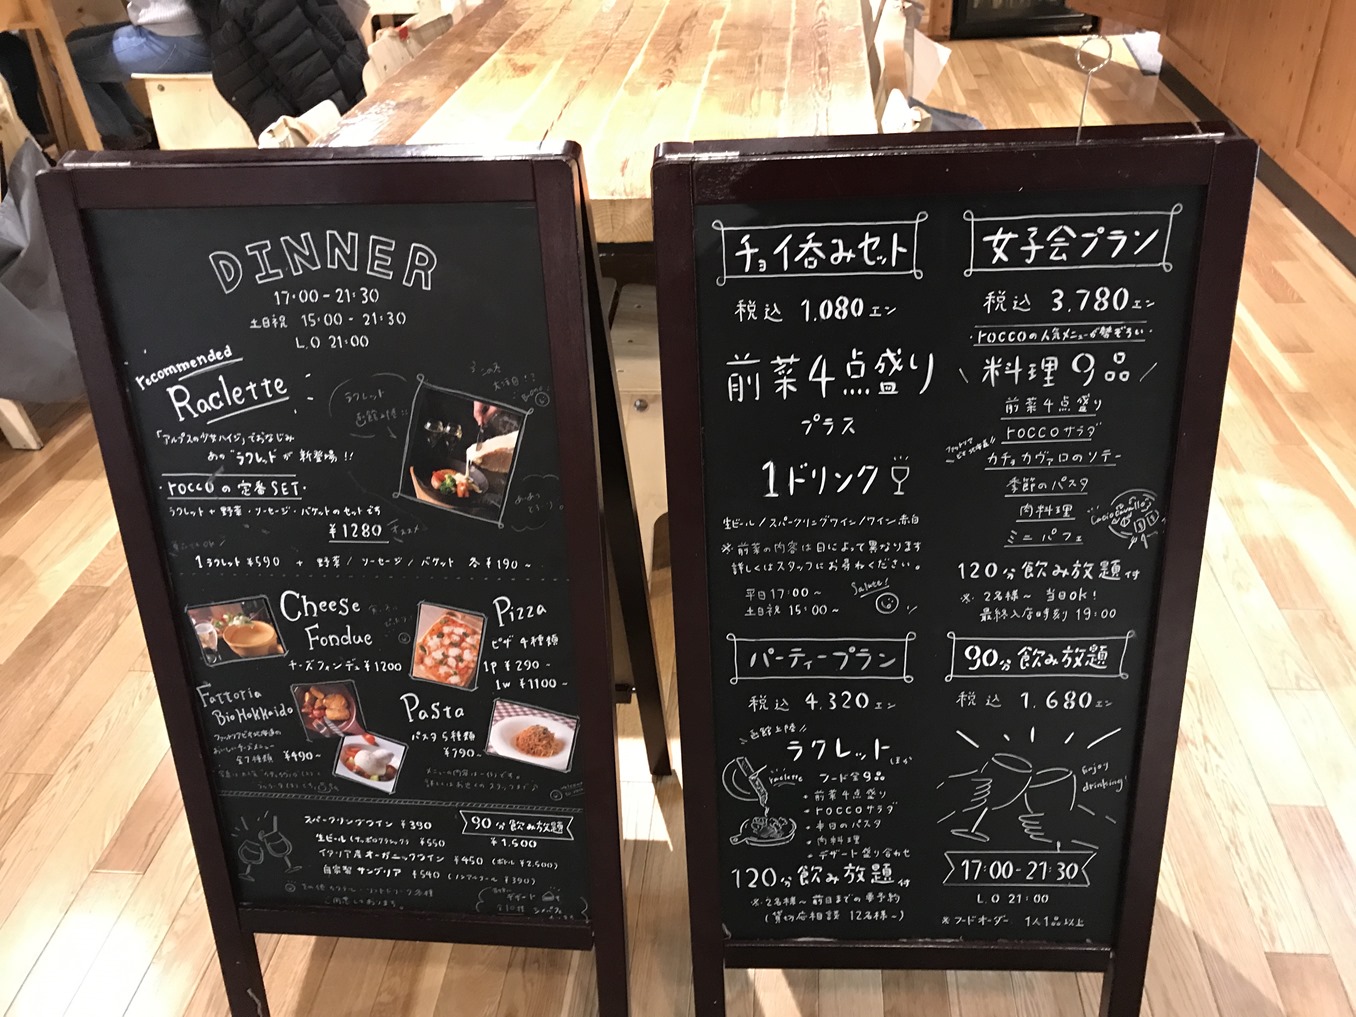 DINNER
17:00-21:30
土日祝 15:00-21:30
L.O 21:00
recommended
Raclette
ラクレット
「アルプスの少女ハイジ」でおなじみ
あの"ラクレット"が新登場!!
・roccoの定番SET・
ラクレット+野菜・ソーセージ・バケットのセットです
¥1280
オススメ
1ラクレット ¥590 + 野菜/ソーセージ/バゲット 各¥190~
Cheese
Fondue
チーズフォンデュ ¥1200
Pizza
ピザ 4種類
1P ¥290-
1w ¥1100-
Fattoria
BioHokkaido
全7種類 ¥490~
Pasta
パスタ5種類
¥790~
スパークリングワイン ¥390
生ビール(サッポロクラシック) ¥550
イタリア産オーガニックワイン ¥450 (ボトル ¥2,500)
自家製サングリア ¥540 (ノンアルコール ¥390)
90分飲み放題
¥1,500
チョイ呑みセット
税込 1.080エン
前菜4点盛り
プラス
1ドリンク
生ビール/スパークリングワイン/ワイン赤白
※前菜の内容は日によって異なります
詳しくはスタッフにお尋ねください。
平日 17:00~
土日祝 15:00~
Salute!
女子会プラン
税込 3.780エン
・roccoの人気メニューが勢ぞろい・
料理9品
前菜4点盛り
roccoサラダ
カチョカヴァロのソテー
季節のパスタ
肉料理
ミニパフェ
Caciocavallo
120分飲み放題付
※2名様~ 当日OK!
最終入店時刻 19:00
パーティープラン
税込 4.320エン
函館上陸
ラクレット ほか
raclette
フード全9品
・前菜4点盛り
・roccoサラダ
・本日のパスタ
・肉料理
・デザート盛り合わせ
120分飲み放題付
※2名様~ 前日までの要予約
(貸切応相談 12名様~)
90分飲み放題
税込 1.680エン
Enjoy
drinking!
17:00-21:30
L.O 21:00
※フードオーダー 1人1品以上